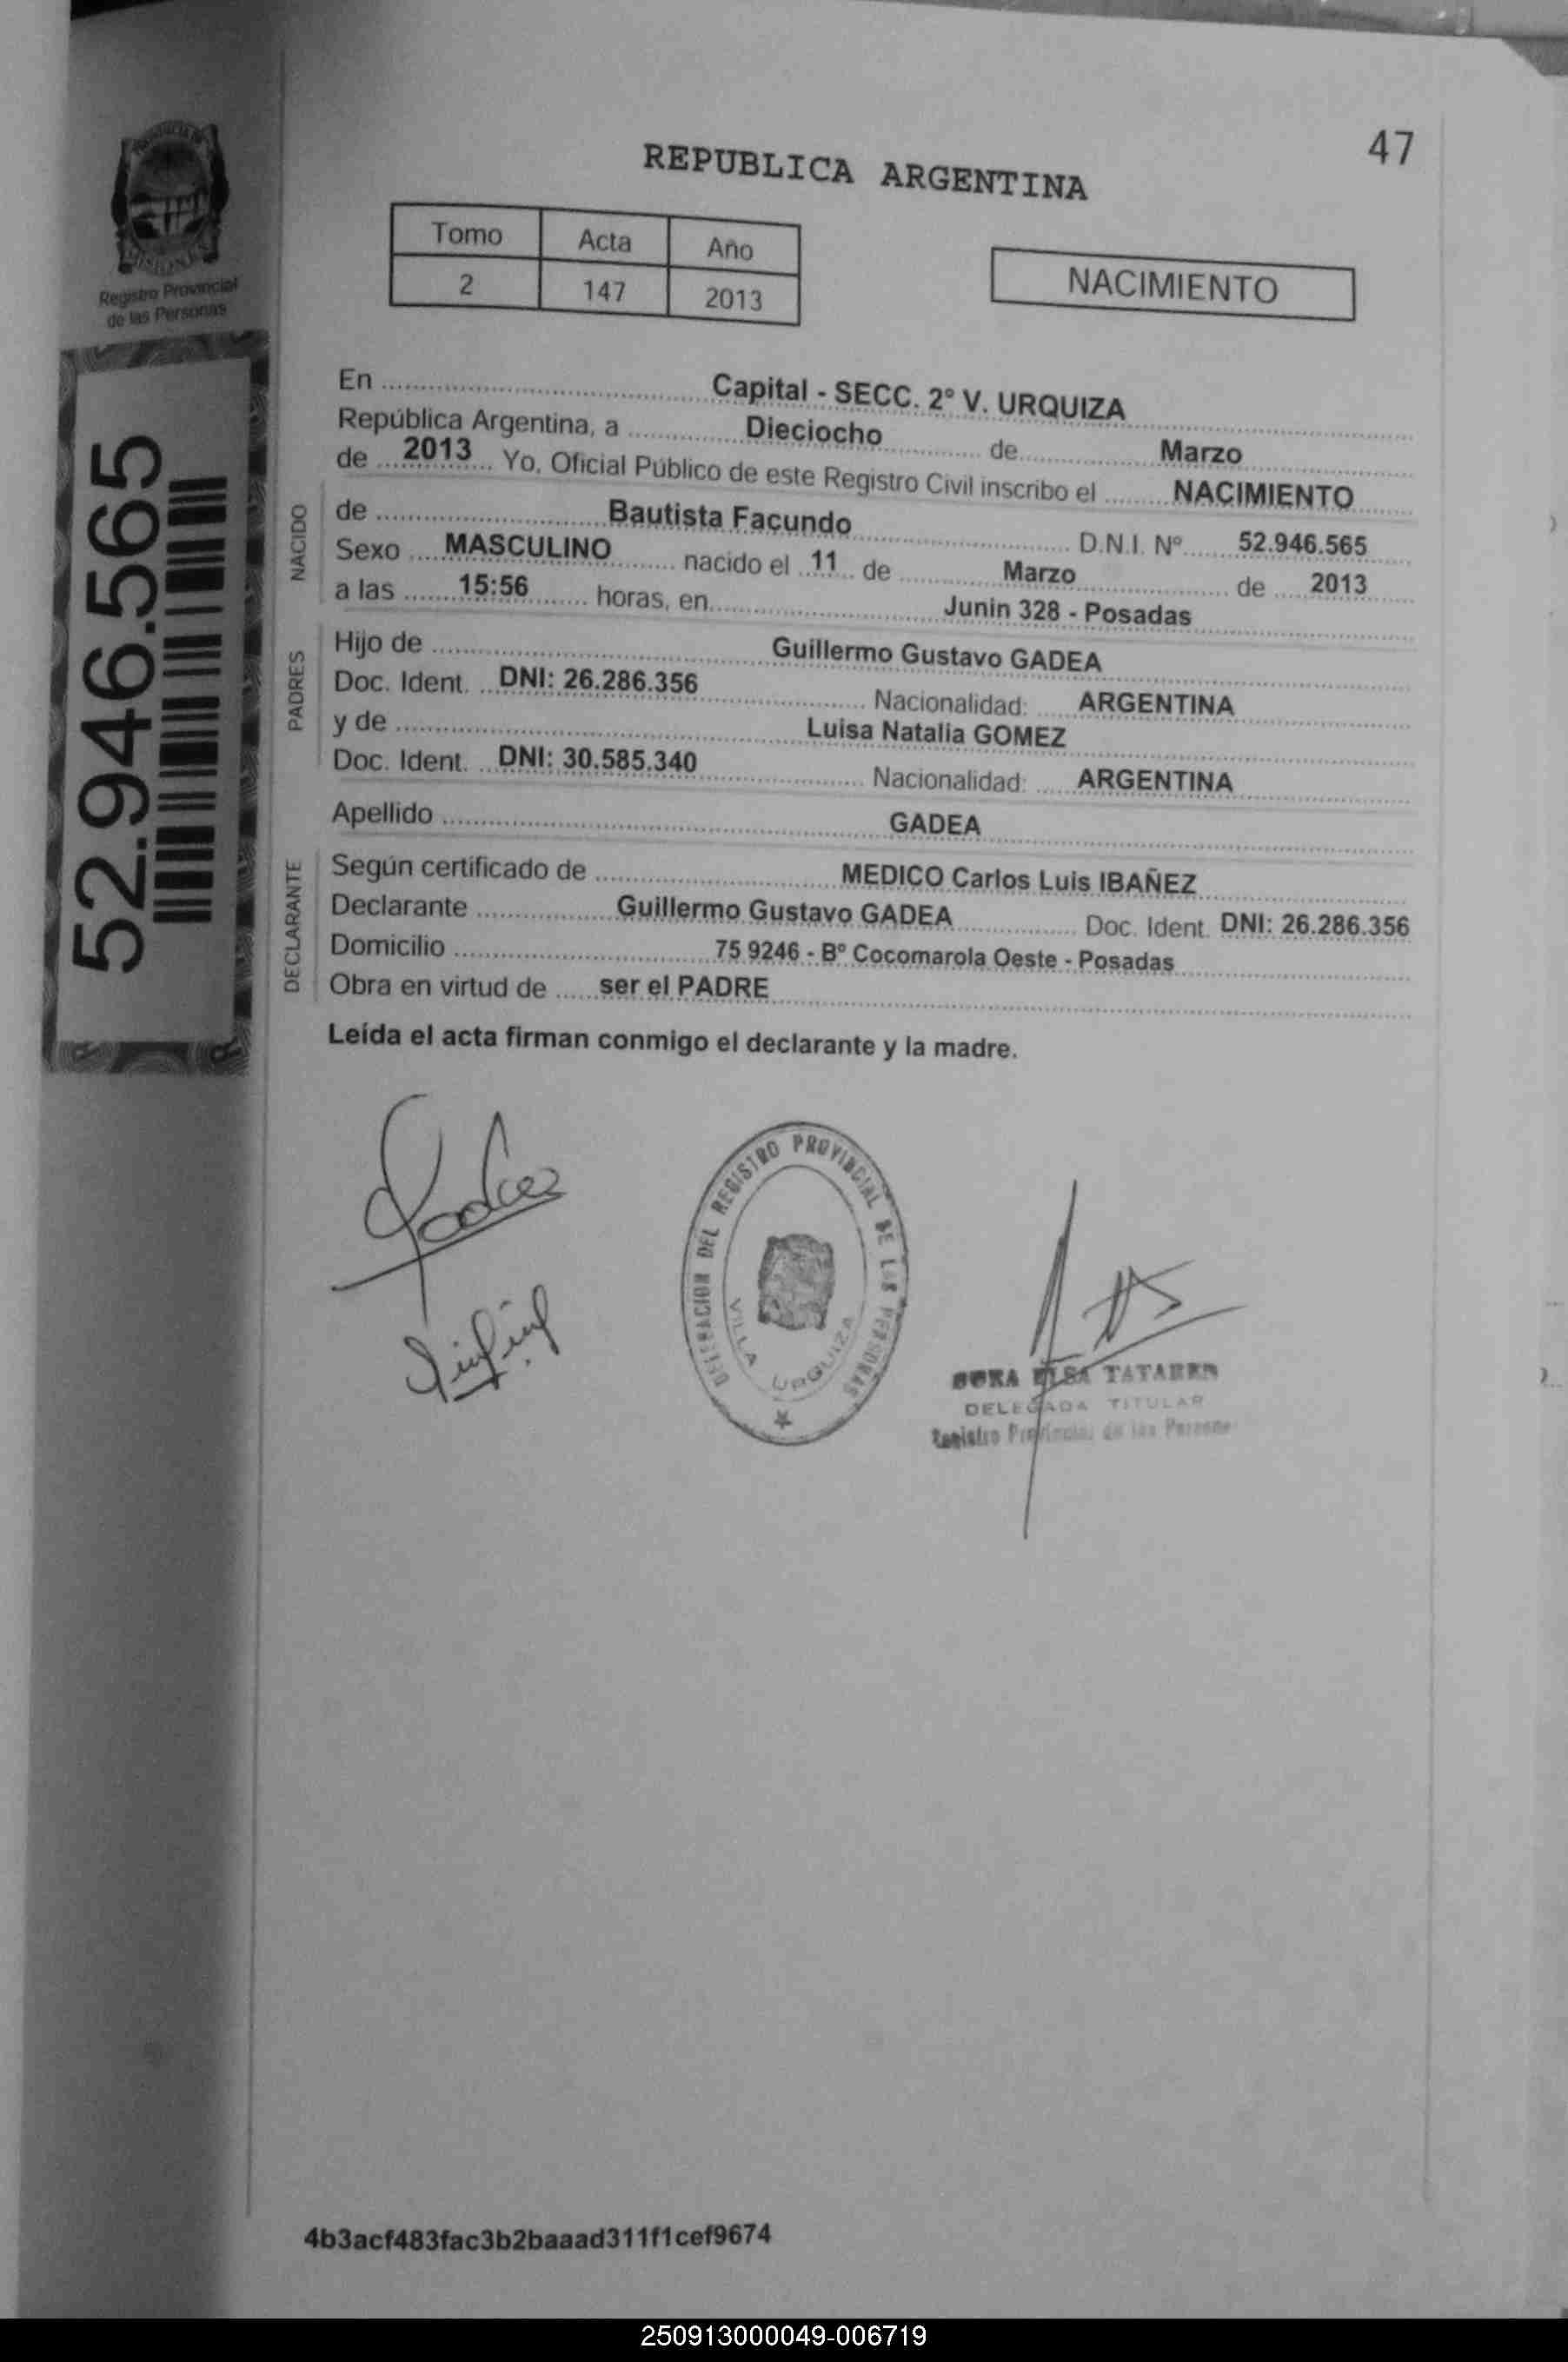 47
REPUBLICA ARGENTINA
Tomo Acta Año
2 147 2013
NACIMIENTO
Registro Provincial
de las Personas
52.946.565
En Capital - SECC. 2º V. URQUIZA
República Argentina, a Dieciocho de Marzo
de 2013 Yo, Oficial Público de este Registro Civil inscribo el NACIMIENTO
NACIDO
de Bautista Facundo D.N.I. Nº 52.946.565
Sexo MASCULINO nacido el 11 de Marzo de 2013
a las 15:56 horas, en Junin 328 - Posadas
PADRES
Hijo de Guillermo Gustavo GADEA
Doc. Ident. DNI: 26.286.356 Nacionalidad: ARGENTINA
y de Luisa Natalia GOMEZ
Doc. Ident. DNI: 30.585.340 Nacionalidad: ARGENTINA
Apellido GADEA
DECLARANTE
Según certificado de MEDICO Carlos Luis IBAÑEZ
Declarante Guillermo Gustavo GADEA Doc. Ident. DNI: 26.286.356
Domicilio 75 9246 - Bº Cocomarola Oeste - Posadas
Obra en virtud de ser el PADRE
Leída el acta firman conmigo el declarante y la madre.
DELEGACION DEL REGISTRO PROVINCIAL DE LAS PERSONAS
VILLA URQUIZA
ELSA TATAREN
DELEGADA TITULAR
Registro Provincial de las Personas
4b3acf483fac3b2baaad311f1cef9674
250913000049-006719